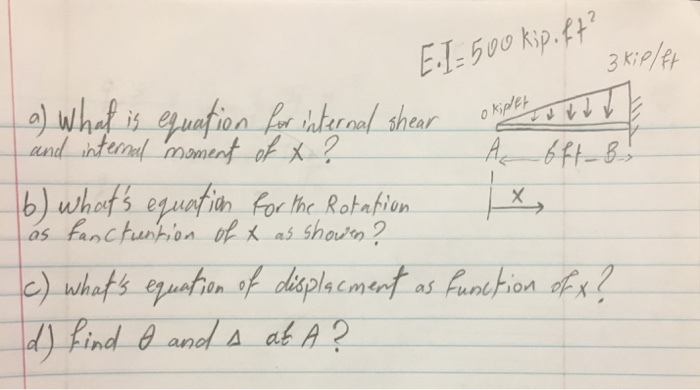 E.I = 500 kip.ft²
3 kip/ft
0 kip/ft
a) What is equation for internal shear
and internal moment of x ?
A 6ft B
b) what's equation for the Rotation
x
as fanctuntion of x as shown?
c) what's equation of displacment as function of x?
d) find θ and Δ at A?